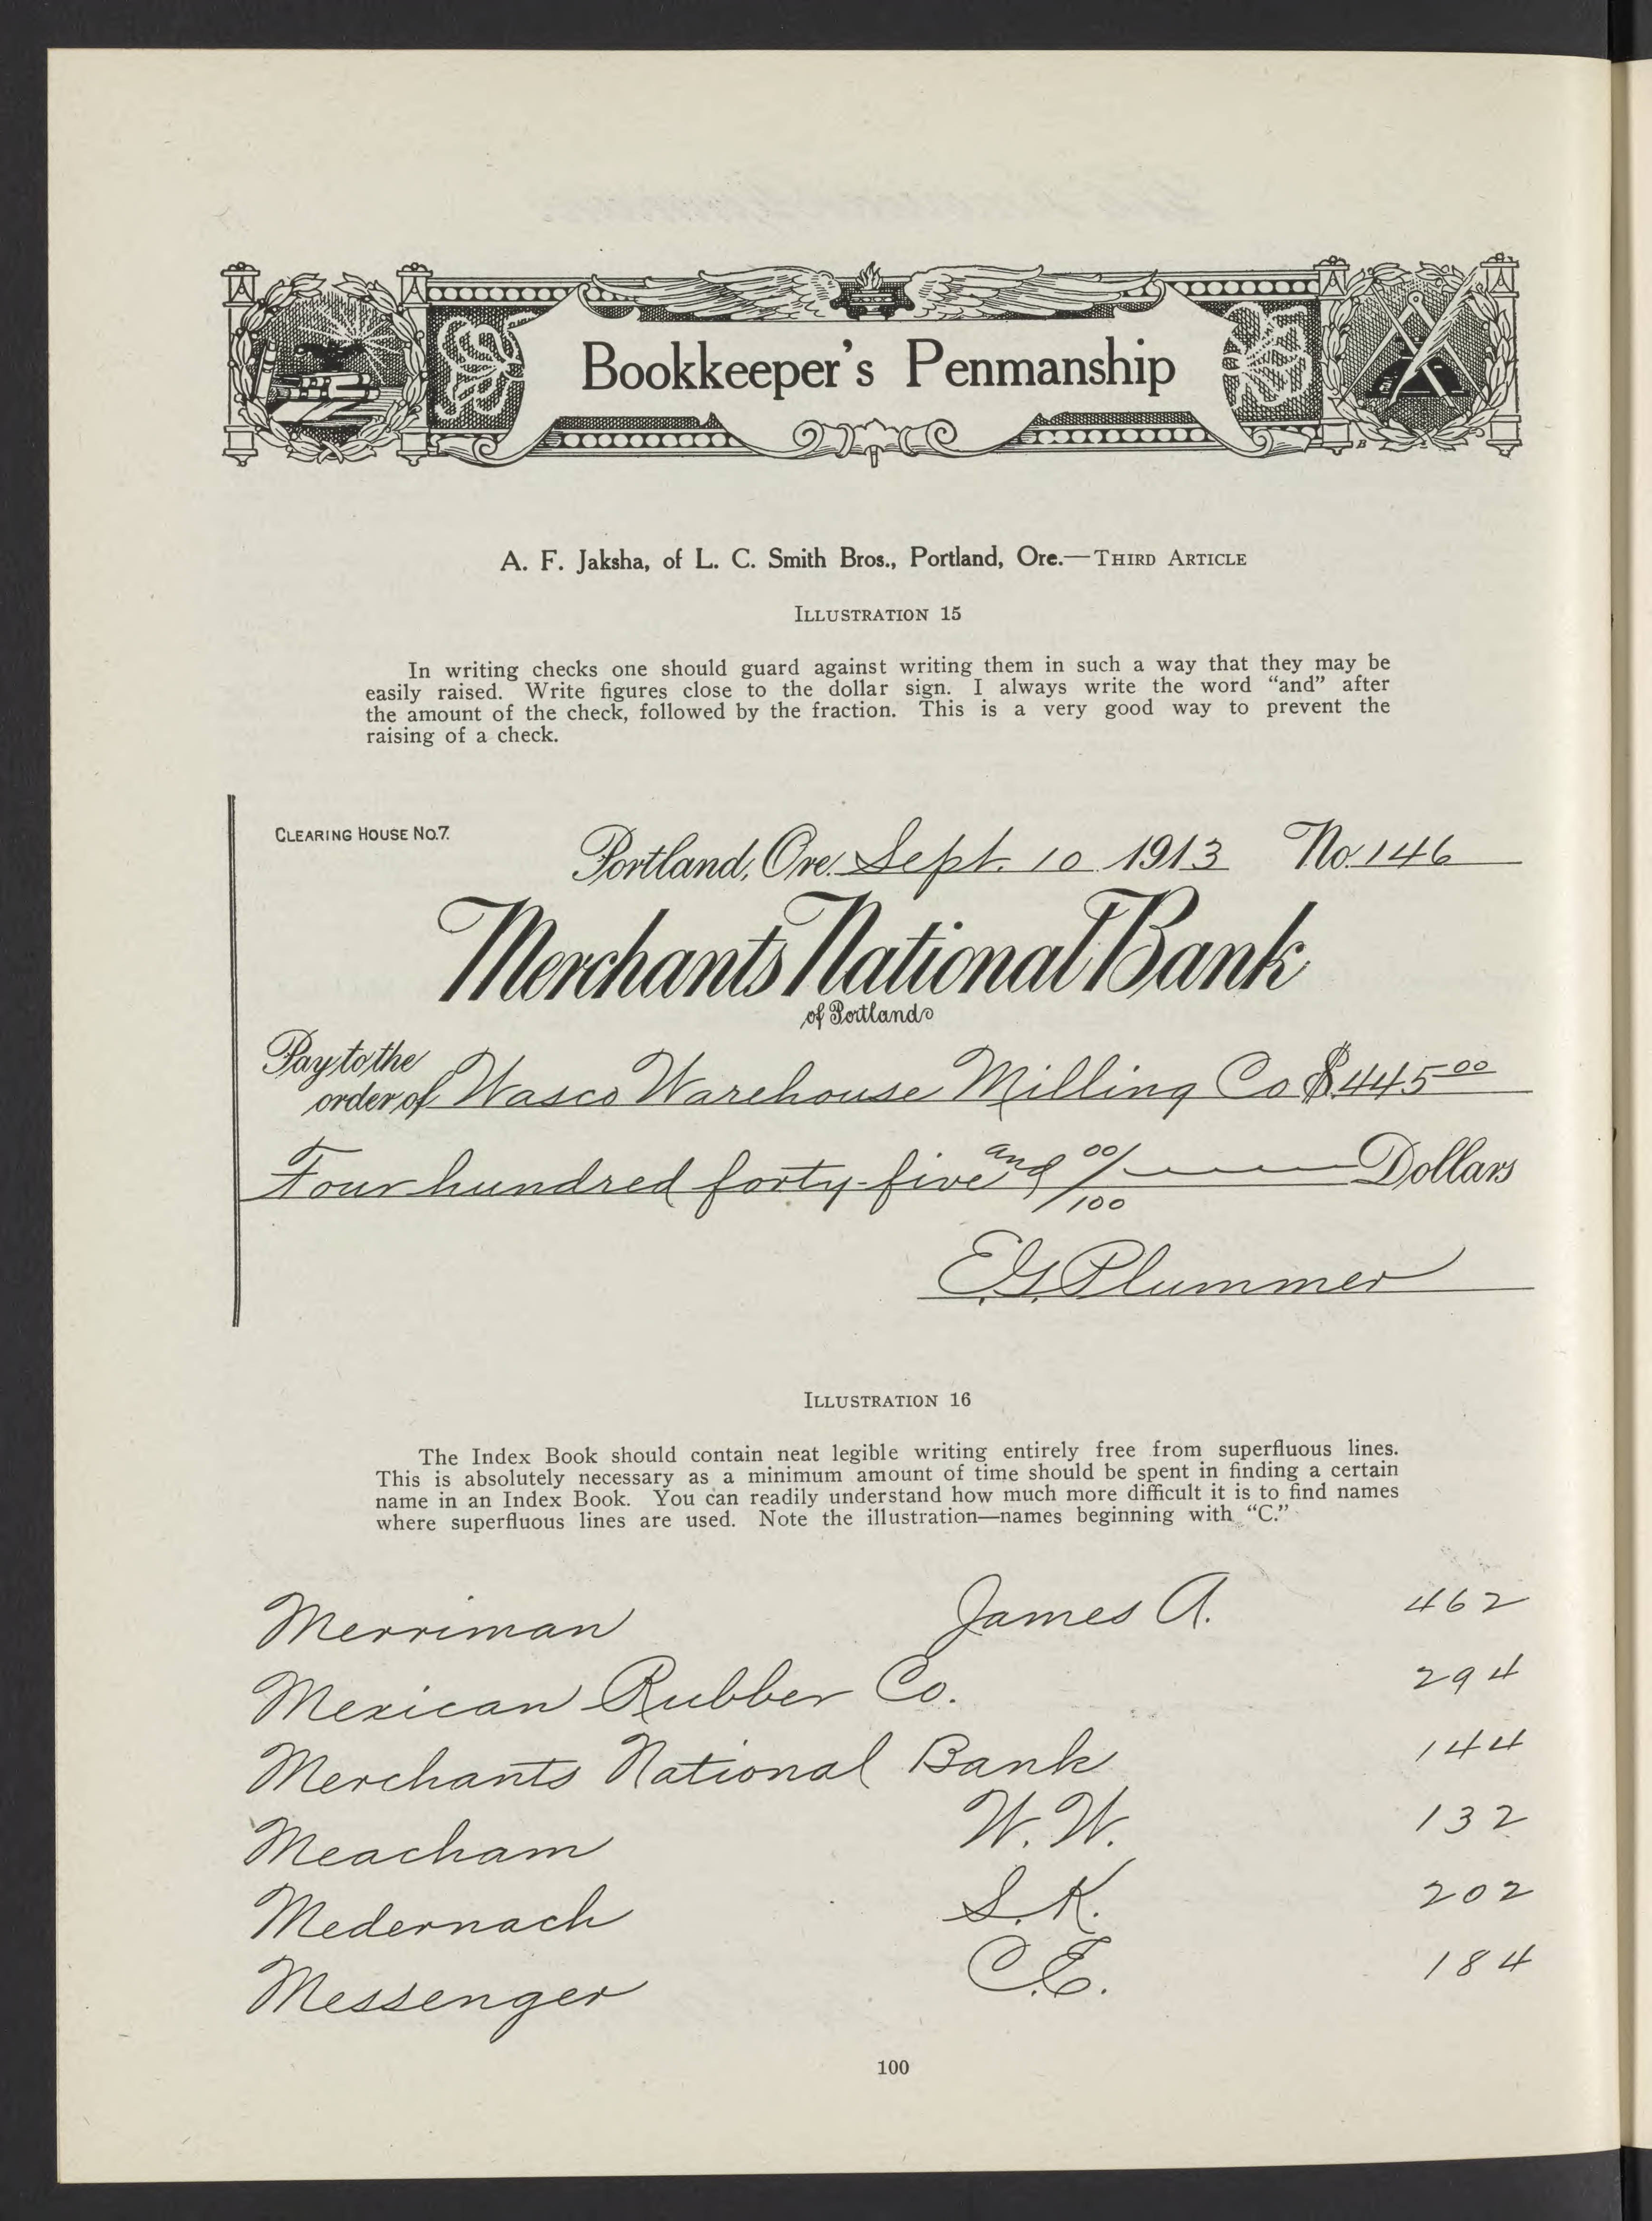 Bookkeeper's Penmanship
A. F. Jaksha, of L. C. Smith Bros., Portland, Ore.—Third Article
Illustration 15
In writing checks one should guard against writing them in such a way that they may be
easily raised. Write figures close to the dollar sign. I always write the word "and" after
the amount of the check, followed by the fraction. This is a very good way to prevent the
raising of a check.
Clearing House No. 7.
Portland, Ore. Sept. 10 1913 No. 146
Merchants National Bank
of Portland
Pay to the
order of Wasco Warehouse Milling Co $445 00
Four hundred forty-five and 00/100 Dollars
E.G. Plummer
Illustration 16
The Index Book should contain neat legible writing entirely free from superfluous lines.
This is absolutely necessary as a minimum amount of time should be spent in finding a certain
name in an Index Book. You can readily understand how much more difficult it is to find names
where superfluous lines are used. Note the illustration—names beginning with "C."
Merriman James A. 462
Mexican Rubber Co. 294
Merchants National Bank 144
Meacham W. W. 132
Medernach S. K. 202
Messenger C. E. 184
100